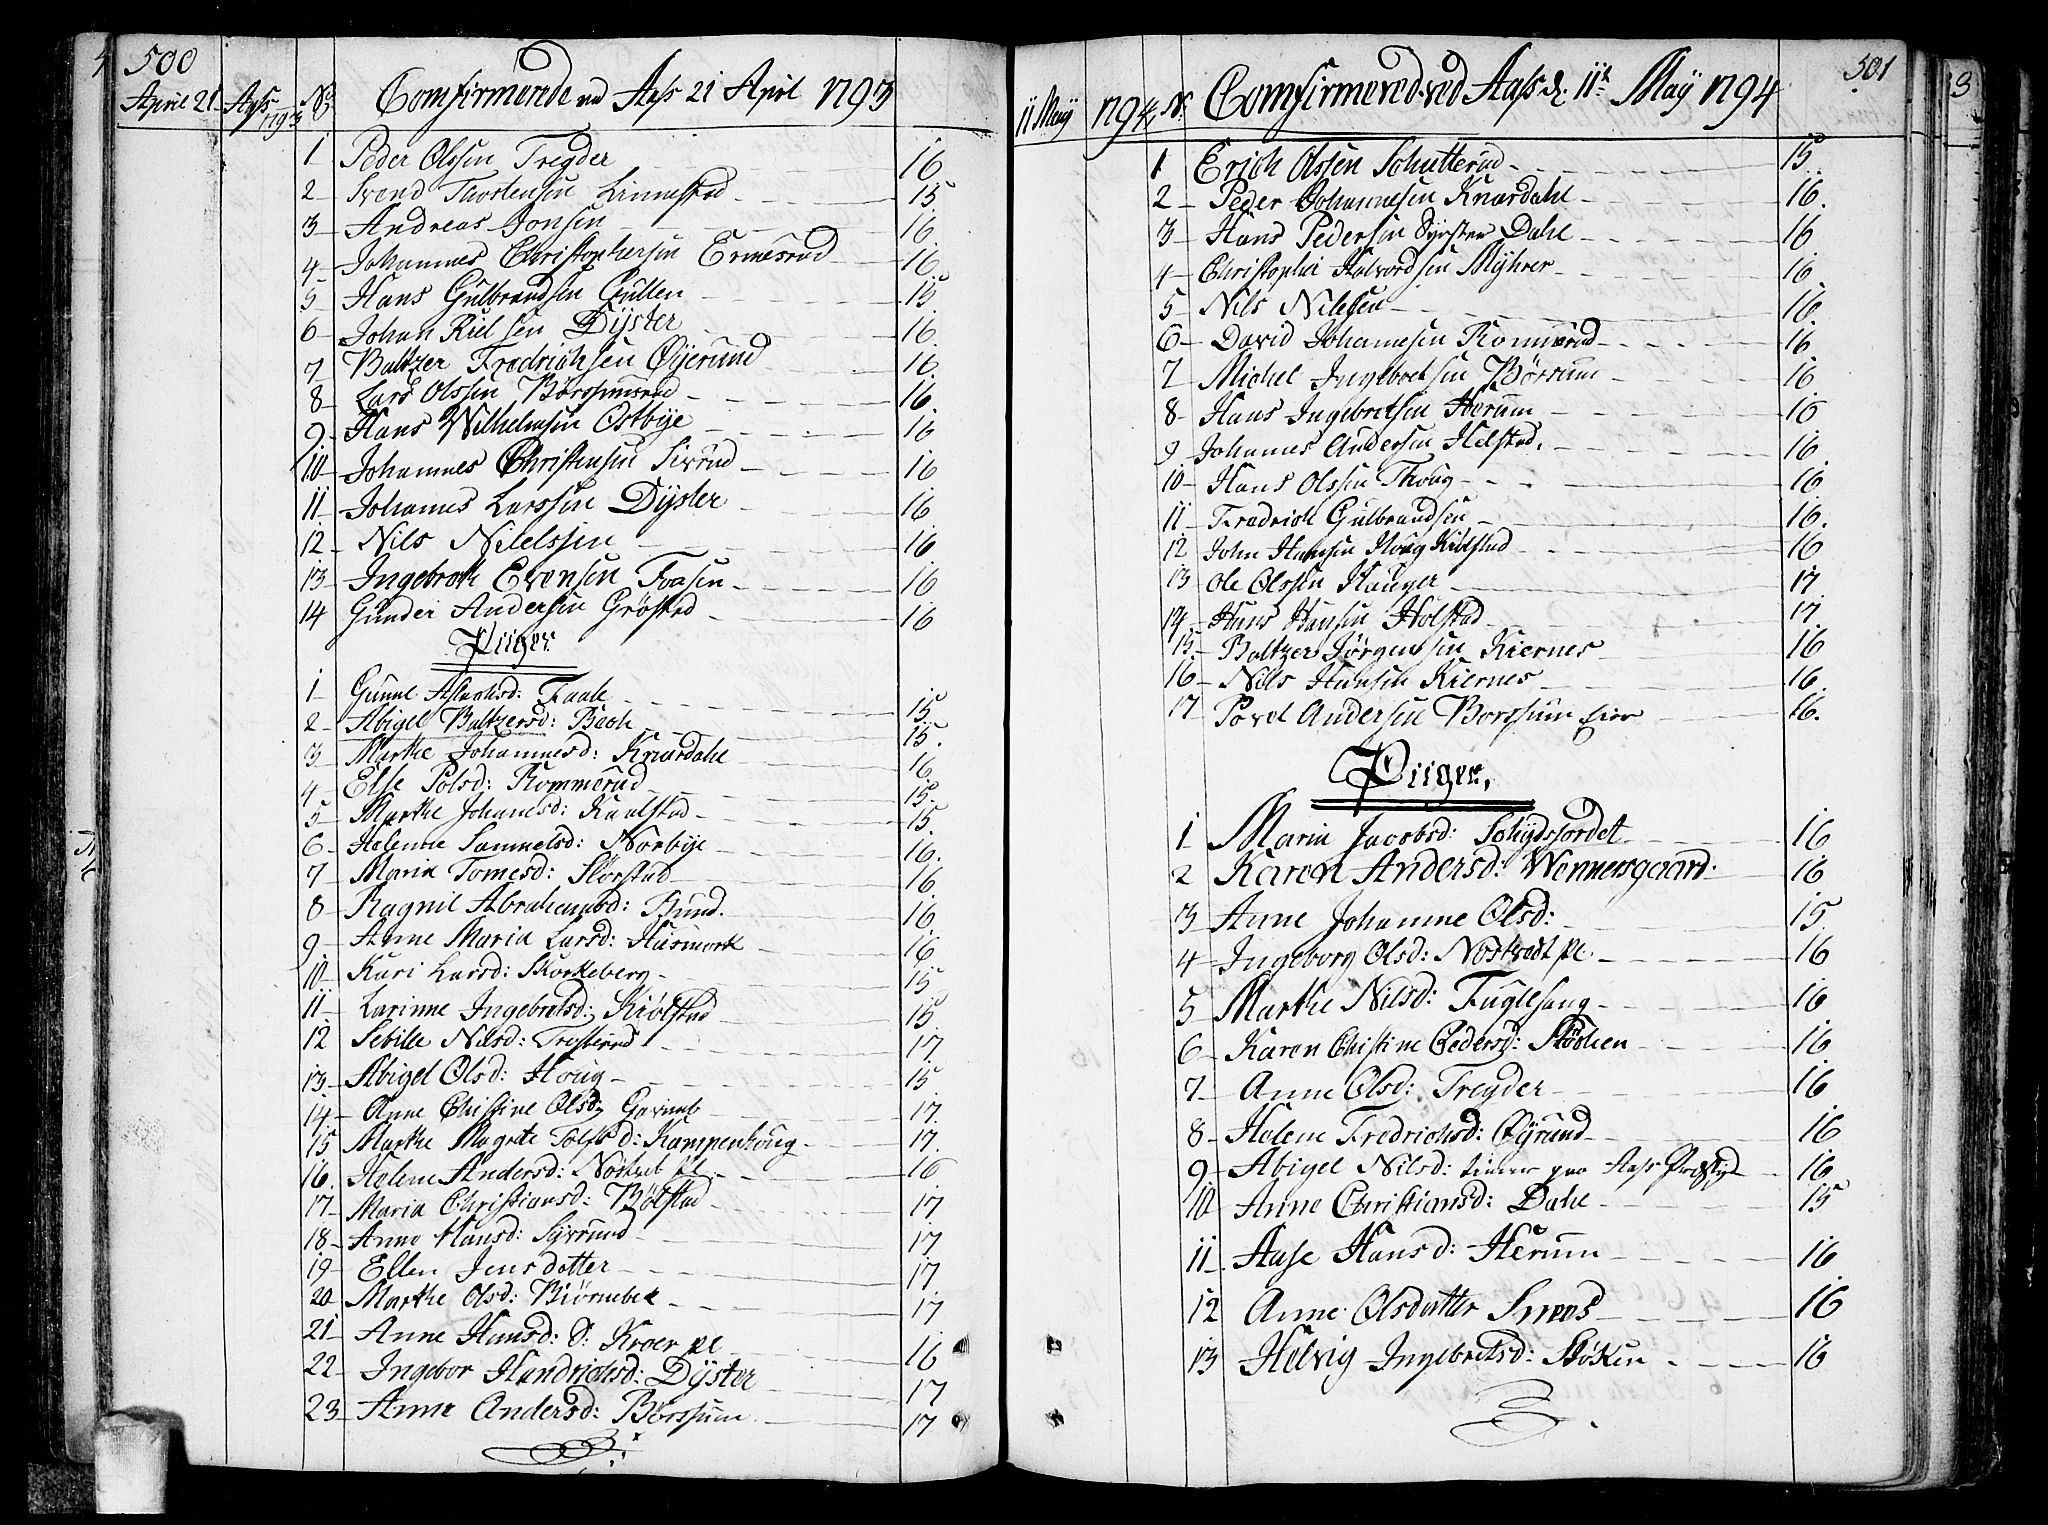 500
April 21 Aass 1793 No Comfirmerede ved Aass 21 April 1793
1 Peder Olssen Tregder 16
2 Svend Thostensen Linnestad 15
3 Andreas Jonsen 16
4 Johannes Christophersen Ermesrud 16
5 Hans Gulbrandsen Gullen 15
6 Johan Kielsen Dyster 16
7 Baltzer Fredrichsen Øyerund 16
8 Lars Olssen Børssumsrud 16
9 Hans Wilhelmsen Ostbye 16
10 Johannes Christensen Sivrud 16
11 Johannes Larssen Dyster 16
12 Nils Nilelssen 16
13 Ingebret Evensen Faasen 16
14 Gunder Andersen Grøstad 16
Piiger
1 Gunne Aslachsd: Faale 15
2 Abigel Baltzersd: Bech 15.
3 Marthe Johannesd: Knardahl 16
4 Else Polsd: Rommerud 15.
5 Marthe Johansd: Kaalstad 15.
6 Helenne Sammelsd: Norbye 16.
7 Maria Tomesd: Skorstad 16
8 Ragnil Abrahamsd: Rund. 16
9 Anne Maria Larsd: Husmork 16
10 Kari Larsd: Skorkeberg 15
11 Larinne Ingebretsd: Kiølstad 15
12 Sebille Nilsd: Trosterud 17
13 Abigel Olsd: Houg 15
14 Anne Christine Olsd: 17.
15 Marthe Magrete Tolfsd: Kampenhoug 17.
16. Helene Andersd: Nøstvet pl. 16
17 Maria Christiansd: Bølstad 17
18 Anne Hansd: Syvrund 17
19 Ellen Jensdotter 17
20 Marthe Olsd: Biørnebek 17
21 Anne Hansd: S: Kroer pl 16
22 Ingebor Handrichsd: Dyster 17
23 Anne Andersd: Børssum 17
501
11 May 1794 N. Comfirmered ved Aass d. 11te May 1794
1 Erich Olssen Schutterud 15
2 Peder Johannesen Knardahl 16.
3 Hans Pedersen Dyster Dahl 16
4 Christopher Halvordsen Myhrer 16
5 Nils Nilesen 16.
6 David Johanesen Rommerud 16
7 Michel Ingebretsen Børsum 16
8 Hans Ingebretsen Herum 16
9 Johannes Andersen Helstad. 16
10 Hans Olssen Thoug 16
11 Fredrich Gulbrandsen 16.
12 John Hansen Houg Kiølstad 16
13 Ole Olssen Hauger 17
14 Hans Hansen Holstad 17.
15. Baltzer Jørgensen Kiernes 16
16 Nils Hansen Kiernes 16.
17 Povel Andersen Borssum Eier 16.
Piiger.
1 Maria Jacobsd: Schydsjordet 16
2 Karen Andersd: Wennersgaard. 16
3 Anne Johanne Olsd: 15
4 Ingeborg Olsd: Nøstvedt pl 16
5 Marthe Nilsd: Fuglesang 16
6 Karen Christine Pedersd: Støchen 16
7 Anne Olsd: Tregder 16
8 Helene Fredrichsd: Øyrund 16
9 Abigel Nilsd: tiener paa Aass Præstgd 16
10 Anne Christiansd: Dahl 15
11 Aase Hansd: Herum 16
12 Anne Olsdatter Smees 16
13 Helvig Ingebretsd: Støken 16